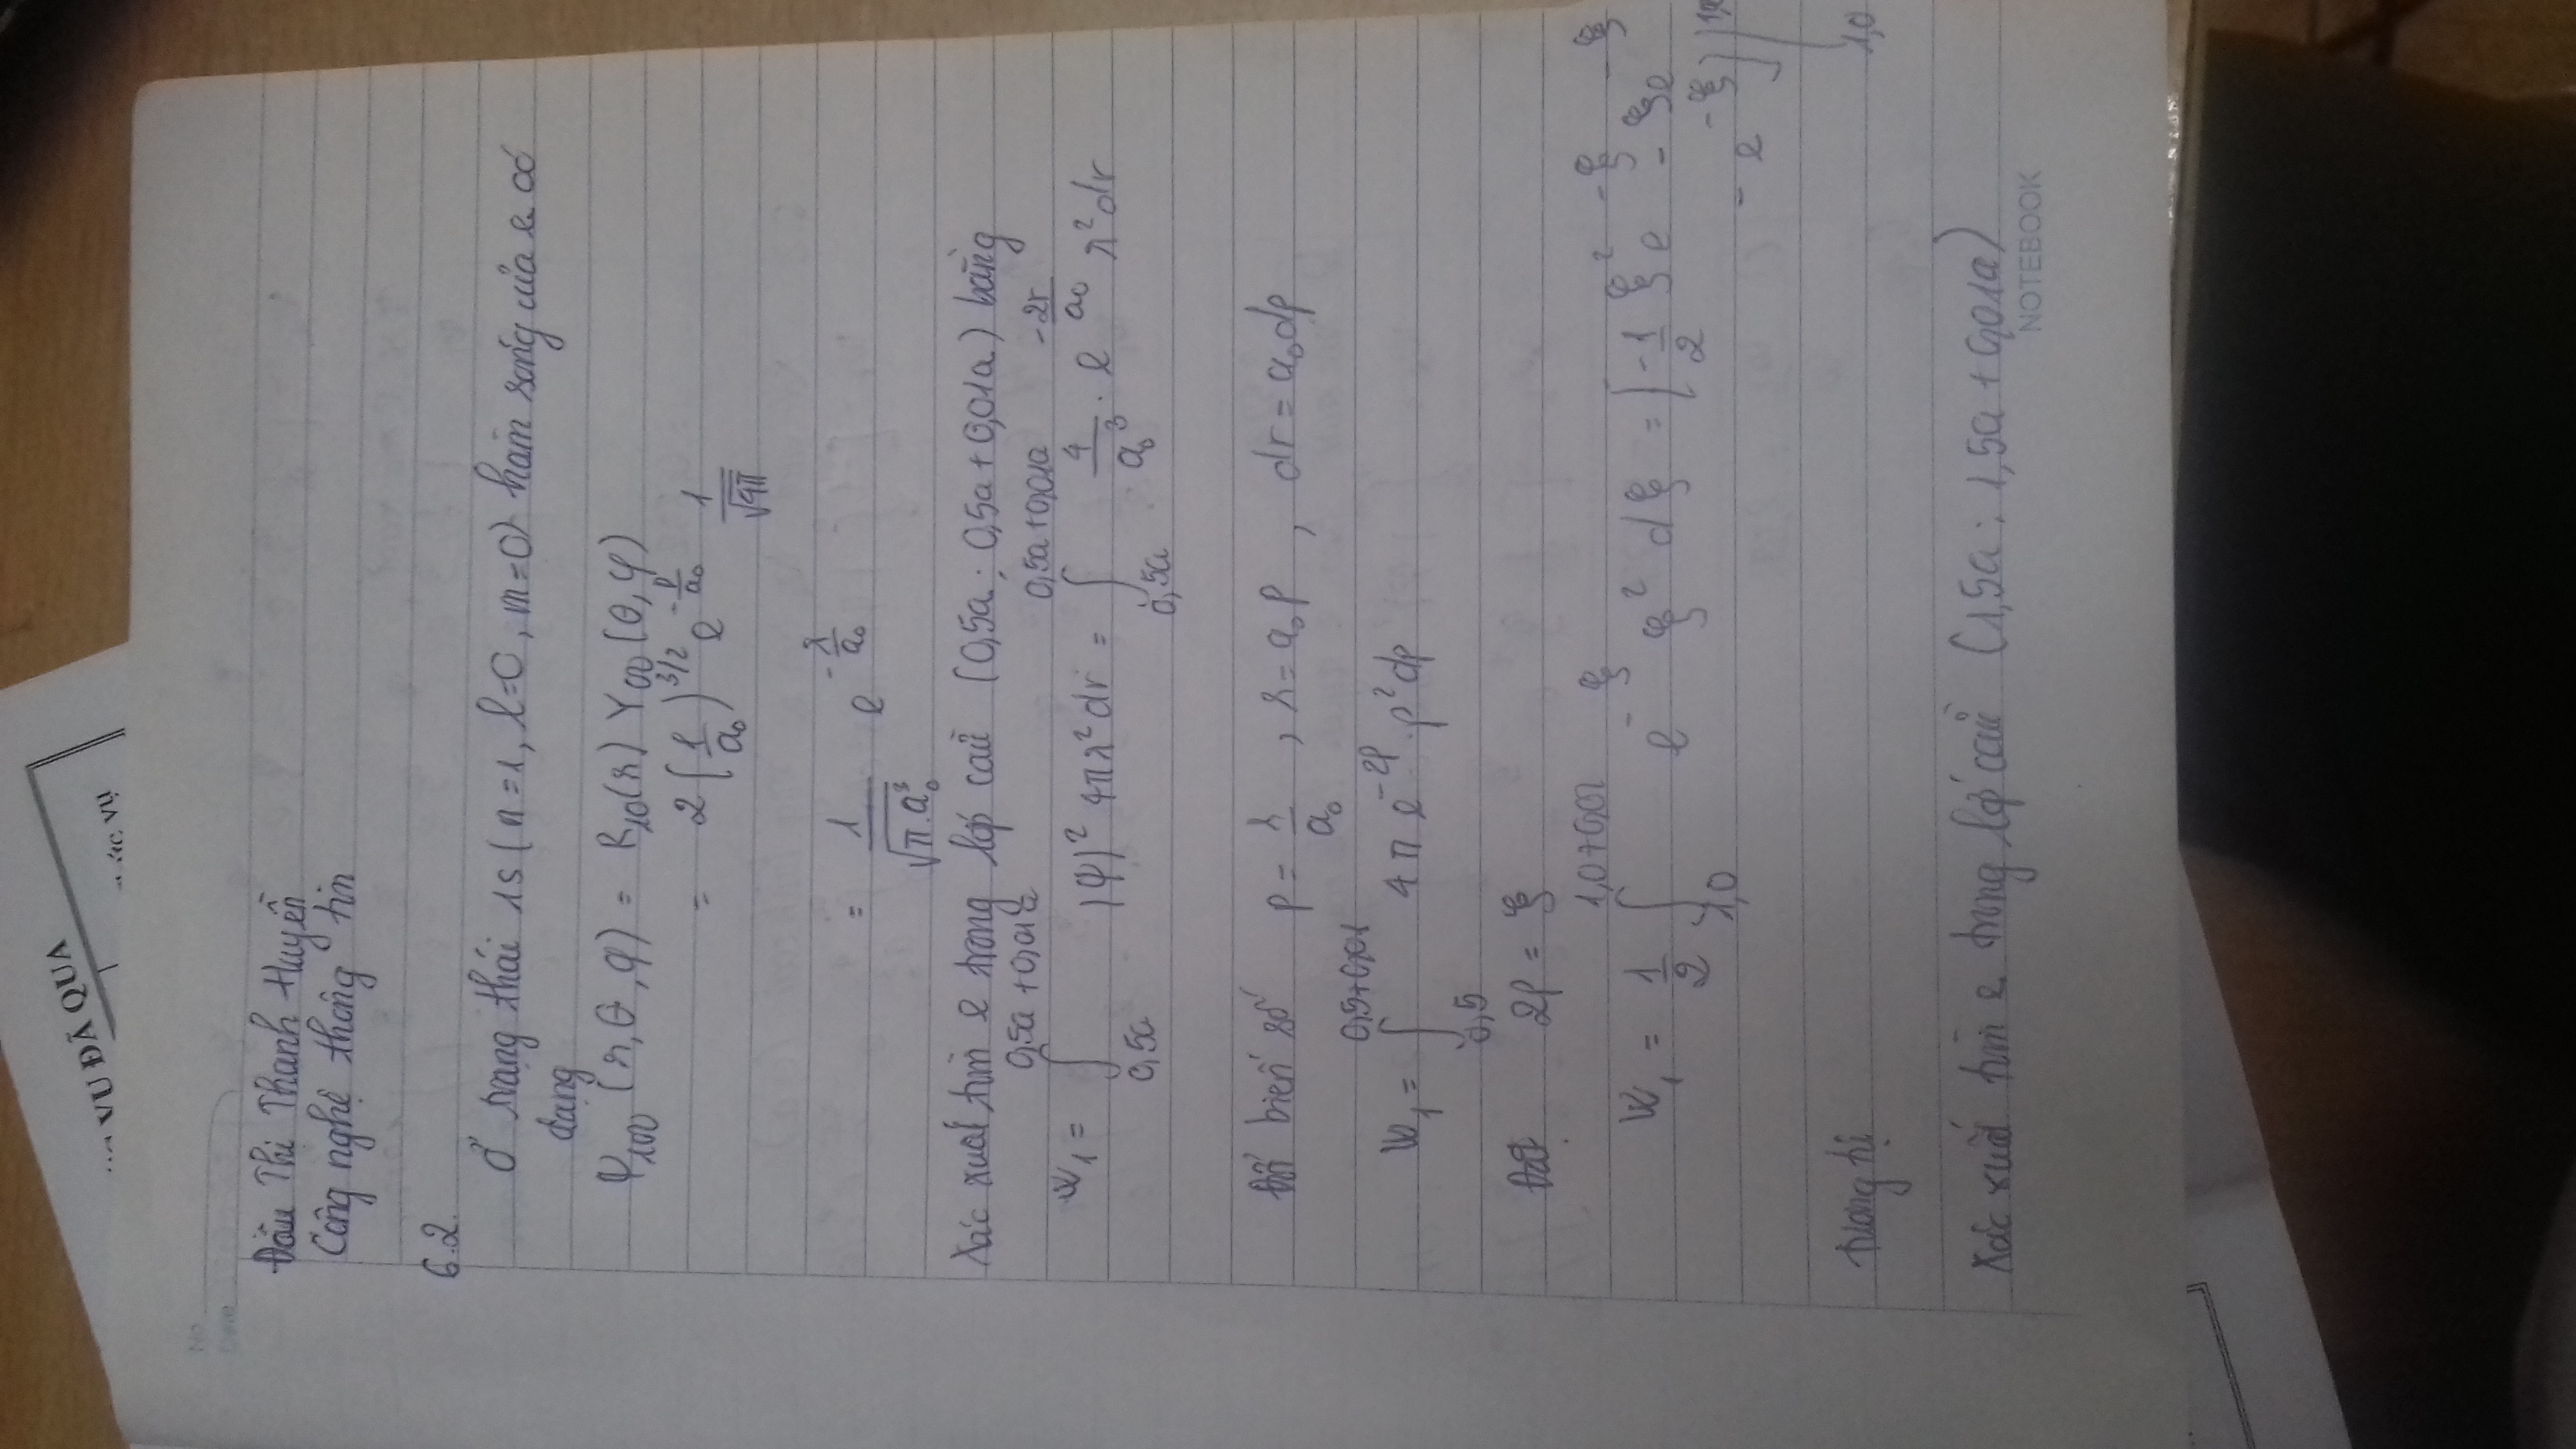 No
Date
... VU ĐÃ QUA
ÁC VỤ
Đoàn Thị Thanh Huyền
Công nghệ thông tin
6.2.
Ở trạng thái 1s (n=1, l=0, m=0) hàm sóng của e có
dạng
Ψ₁₀₀ (r, θ, φ) = R₁₀(r) Y₀₀(θ, φ)
= 2 (1/a₀)^3/2 e^-r/a₀ 1/√4π
= 1/√π.a₀³ e^-r/a₀
Xác xuất tìm e trong lớp cầu (0,5a ; 0,5a + 0,01a) bằng
W₁ = ∫_{0,5a}^{0,5a + 0,01a} |Ψ|² 4πr²dr = ∫_{0,5a}^{0,5a+0,01a} 4/a₀³ . e^-2r/a₀ r²dr
Đổi biến số ρ = r/a₀ , r = a₀ρ , dr = a₀dρ
W₁ = ∫_{0,5}^{0,5+0,01} 4π e^-2ρ . ρ²dρ
Đặt 2ρ = ξ
W₁ = 1/2 ∫_{1,0} e^-ξ ξ² dξ = [-1/2 ξ² e^-ξ - ξe^-ξ
- e^-ξ]
1,0
Tương tự
Xác xuất tìm e trong lớp cầu (1,5a ; 1,5a + 0,01a)
NOTEBOOK